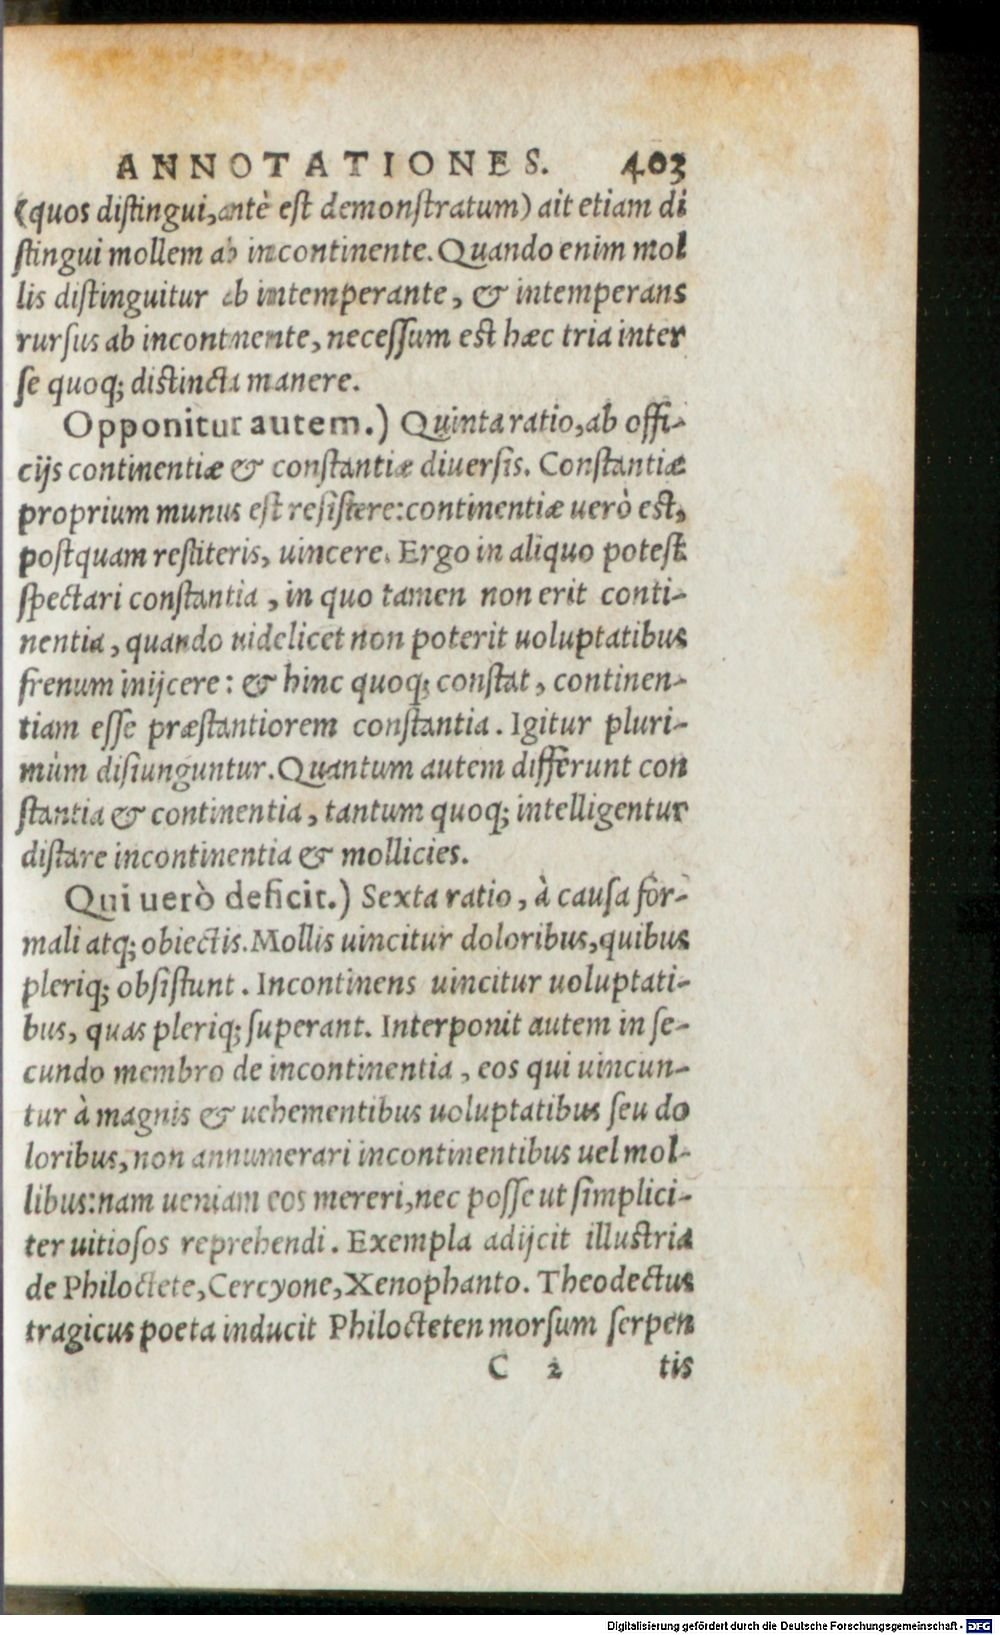 ANNOTATIONES. 403
(quos distingui, antè est demonstratum) ait etiam di
stingui mollem ab incontinente. Quando enim mol
lis distinguitur ab intemperante, & intemperans
rursus ab incontinente, necessum est hæc tria inter
se quoq; distincta manere.
Opponitur autem.) Quinta ratio, ab offi-
cijs continentiæ & constantiæ diuersis. Constantiæ
proprium munus est resistere: continentiæ uerò est,
postquam restiteris, uincere. Ergo in aliquo potest
spectari constantia, in quo tamen non erit conti-
nentia, quando uidelicet non poterit uoluptatibus
frenum inijcere: & hinc quoq; constat, continen-
tiam esse præstantiorem constantia. Igitur pluri-
mùm disiunguntur. Quantum autem differunt con
stantia & continentia, tantum quoq; intelligentur
distare incontinentia & mollicies.
Qui uerò deficit.) Sexta ratio, à causa for-
mali atq; obiectis. Mollis uincitur doloribus, quibus
pleriq; obsistunt. Incontinens uincitur uoluptati-
bus, quas pleriq; superant. Interponit autem in se-
cundo membro de incontinentia, eos qui uincun-
tur à magnis & uehementibus uoluptatibus seu do
loribus, non annumerari incontinentibus uel mol-
libus: nam ueniam eos mereri, nec posse ut simplici-
ter uitiosos reprehendi. Exempla adijcit illustria
de Philoctete, Cercyone, Xenophanto. Theodectus
tragicus poeta inducit Philocteten morsum serpen
C 2 tis
Digitalisierung gefördert durch die Deutsche Forschungsgemeinschaft - DFG